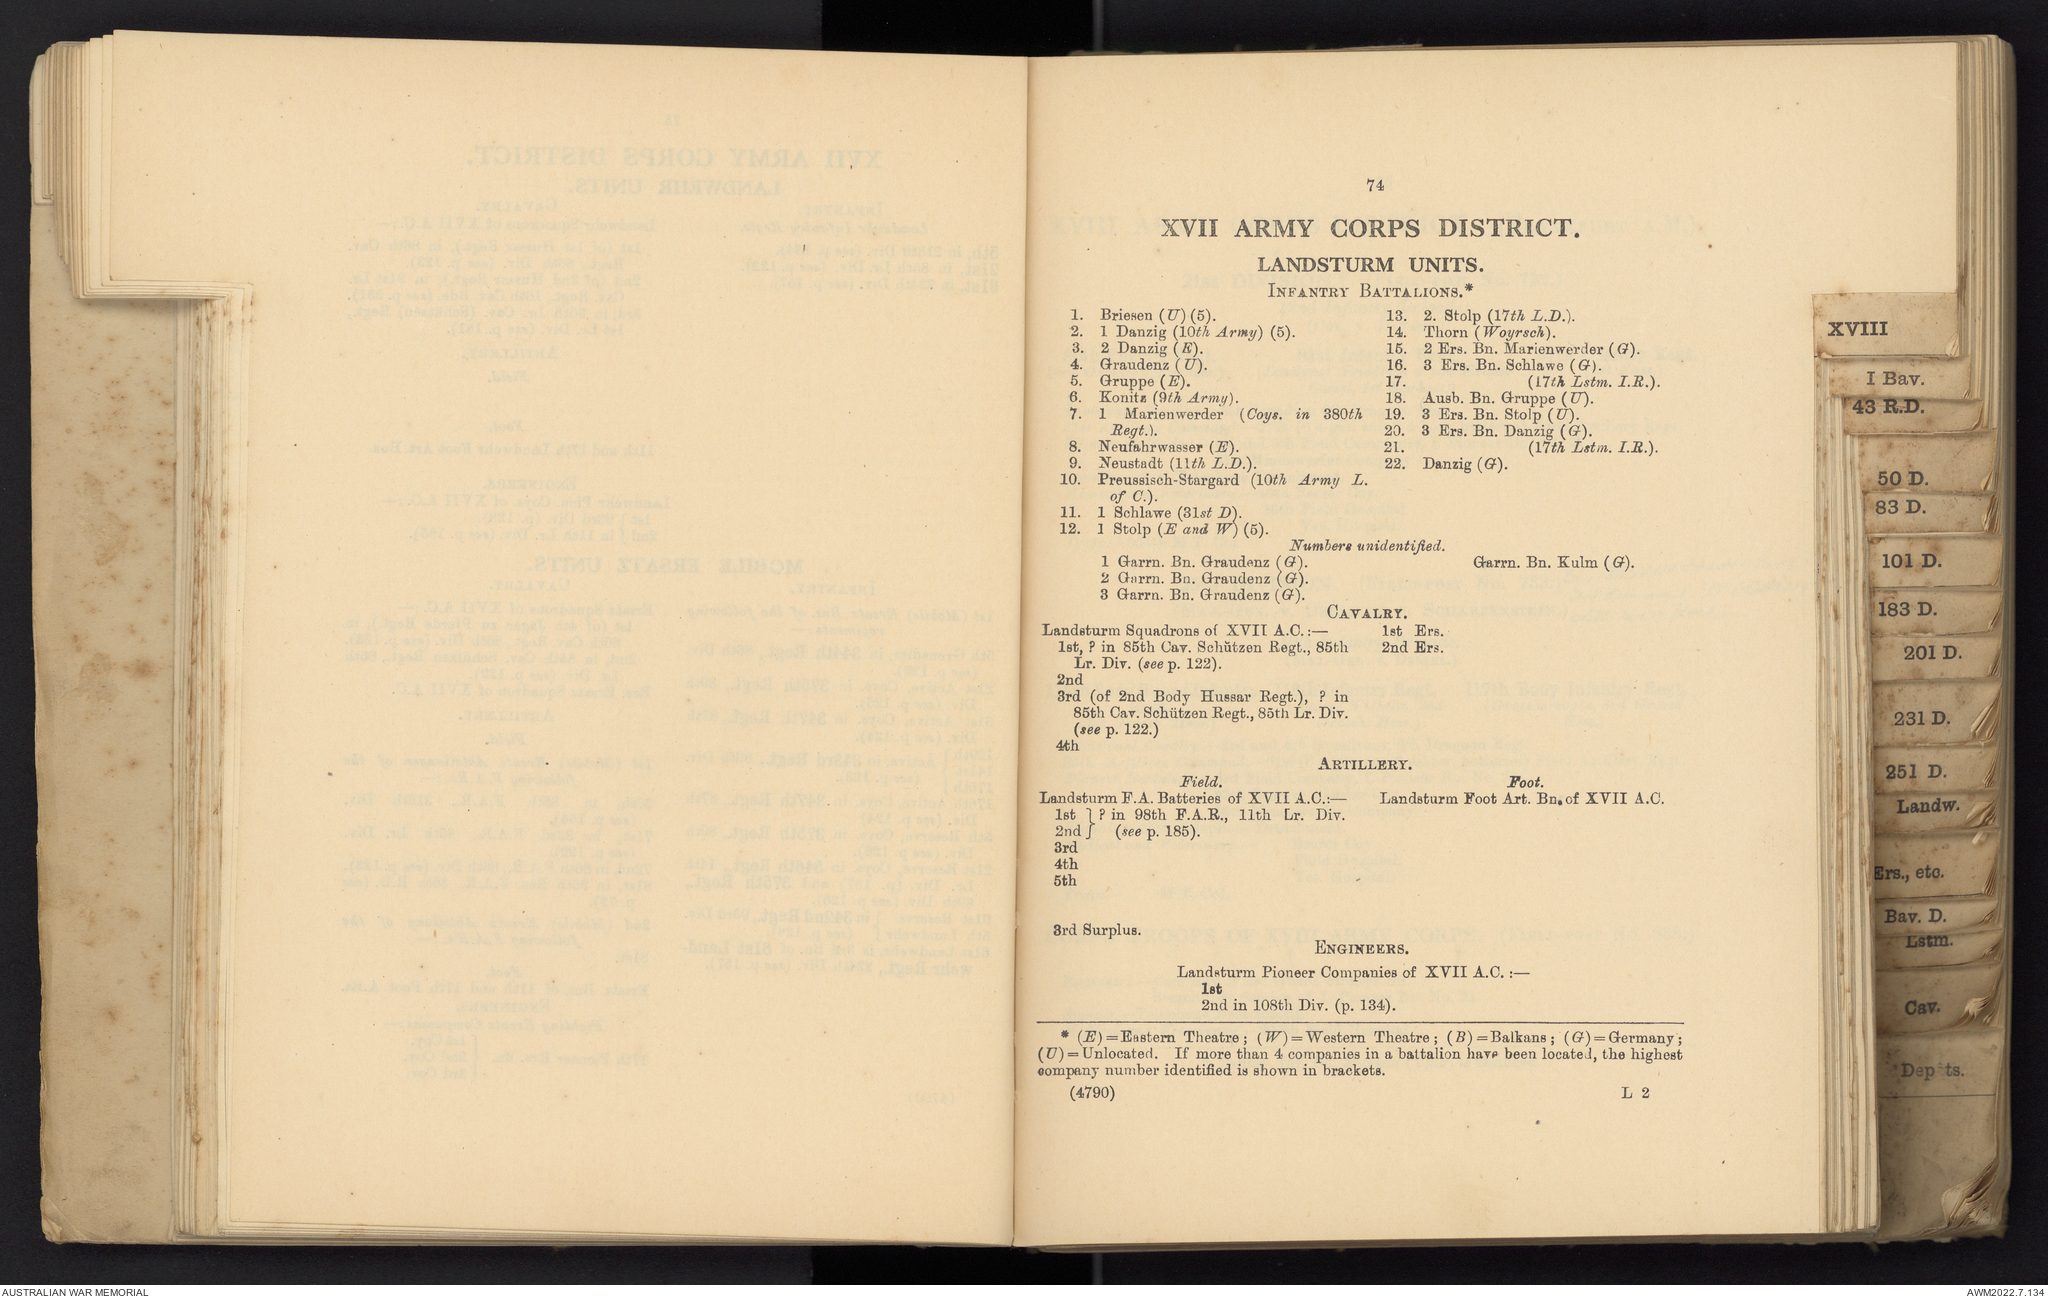 74
XVII ARMY CORPS DISTRICT.
LANDSTURM UNITS.
INFANTRY BATTALIONS.*
1. Briesen (U) (5).
2. 1 Danzig (10th Army) (5).
3. 2 Danzig (E).
4. Graudenz (U).
5. Gruppe (E).
6. Konitz (9th Army).
7. 1 Marienwerder (Coys. in 380th
Regt.).
8. Neufahrwasser (E).
9. Neustadt (11th L.D.).
10. Preussisch-Stargard (10th Army L.
of C.).
11. 1 Schlawe (31st D).
12. 1 Stolp (E and W) (5).
13. 2. Stolp (17th L.D.).
14. Thorn (Woyrsch).
15. 2 Ers. Bn. Marienwerder (G).
16. 3 Ers. Bn. Schlawe (G).
17. (17th Lstm. I.R.).
18. Ausb. Bn. Gruppe (U).
19. 3 Ers. Bn. Stolp (U).
20. 3 Ers. Bn. Danzig (G).
21. (17th Lstm. I.R.).
22. Danzig (G).
Numbers unidentified.
1 Garrn. Bn. Graudenz (G).
2 Garrn. Bn. Graudenz (G).
3 Garrn. Bn. Graudenz (G).
Garrn. Bn. Kulm (G).
CAVALRY.
Landsturm Squadrons of XVII A.C.:—
1st, ? in 85th Cav. Schützen Regt., 85th
Lr. Div. (see p. 122).
2nd
3rd (of 2nd Body Hussar Regt.), ? in
85th Cav. Schützen Regt., 85th Lr. Div.
(see p. 122.)
4th
1st Ers.
2nd Ers.
ARTILLERY.
Field.
Landsturm F.A. Batteries of XVII A.C.:—
1st } ? in 98th F.A.R., 11th Lr. Div.
2nd } (see p. 185).
3rd
4th
5th
3rd Surplus.
Foot.
Landsturm Foot Art. Bn. of XVII A.C.
ENGINEERS.
Landsturm Pioneer Companies of XVII A.C. :—
1st
2nd in 108th Div. (p. 134).
* (E)=Eastern Theatre; (W)=Western Theatre; (B)=Balkans; (G)=Germany;
(U)=Unlocated. If more than 4 companies in a battalion have been located, the highest
company number identified is shown in brackets.
(4790) L 2
XVIII
I Bav.
43 R.D.
50 D.
83 D.
101 D.
183 D.
201 D.
231 D.
251 D.
Landw.
Ers., etc.
Bav. D.
Lstm.
Cav.
Depôts.
AUSTRALIAN WAR MEMORIAL
AWM2022.7.134